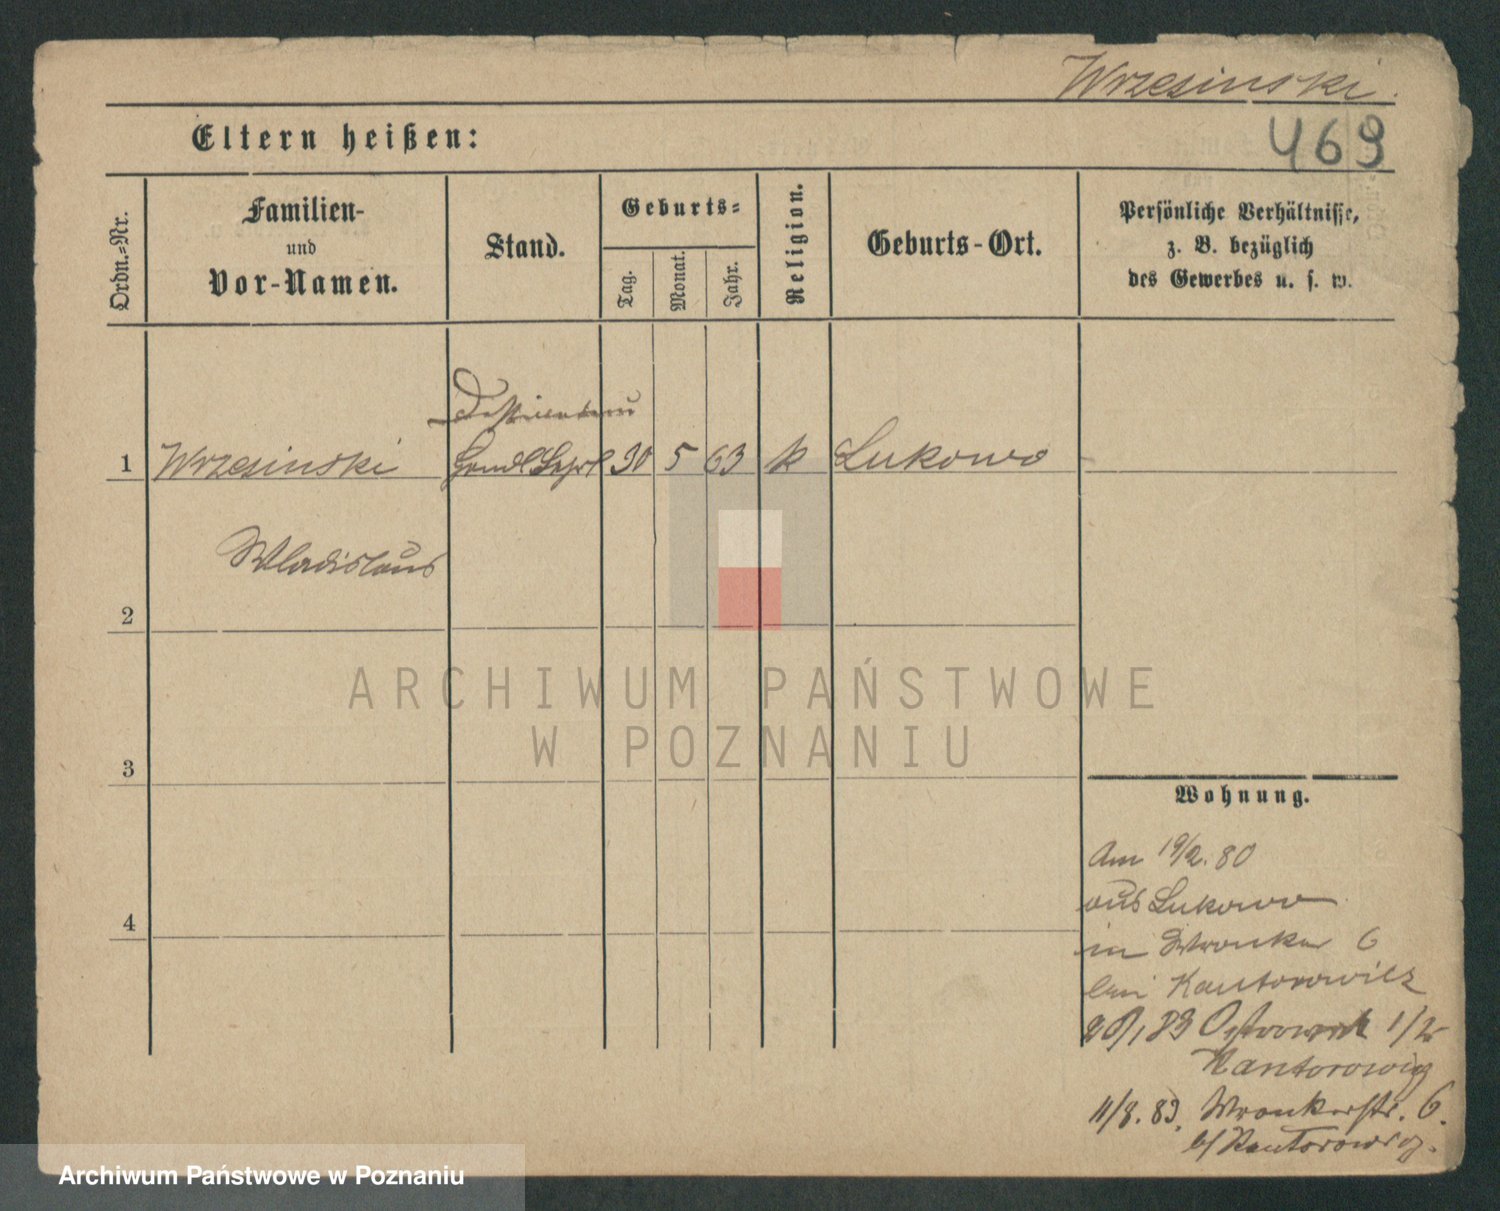 Wrzesinski.
469
Eltern heißen:
Ordn.=Nr.
Familien-
und
Vor-Namen.
Stand.
Geburts=
Tag.
Monat.
Jahr.
Religion.
Geburts-Ort.
Persönliche Verhältnisse,
z. B. bezüglich
des Gewerbes u. s. w.
1 Wrzesinski 30 5 63 k Lukowo
Wladislaus
2
3
4
ARCHIWUM PAŃSTWOWE
W POZNANIU
Wohnung.
Am 19/2. 80
aus Lukowo
in Wronker 6
bei Kantorowicz
83 1/2
Kantorowicz
11/8. 83. Wronkerstr. 6.
b/ Kantorowicz.
Archiwum Państwowe w Poznaniu